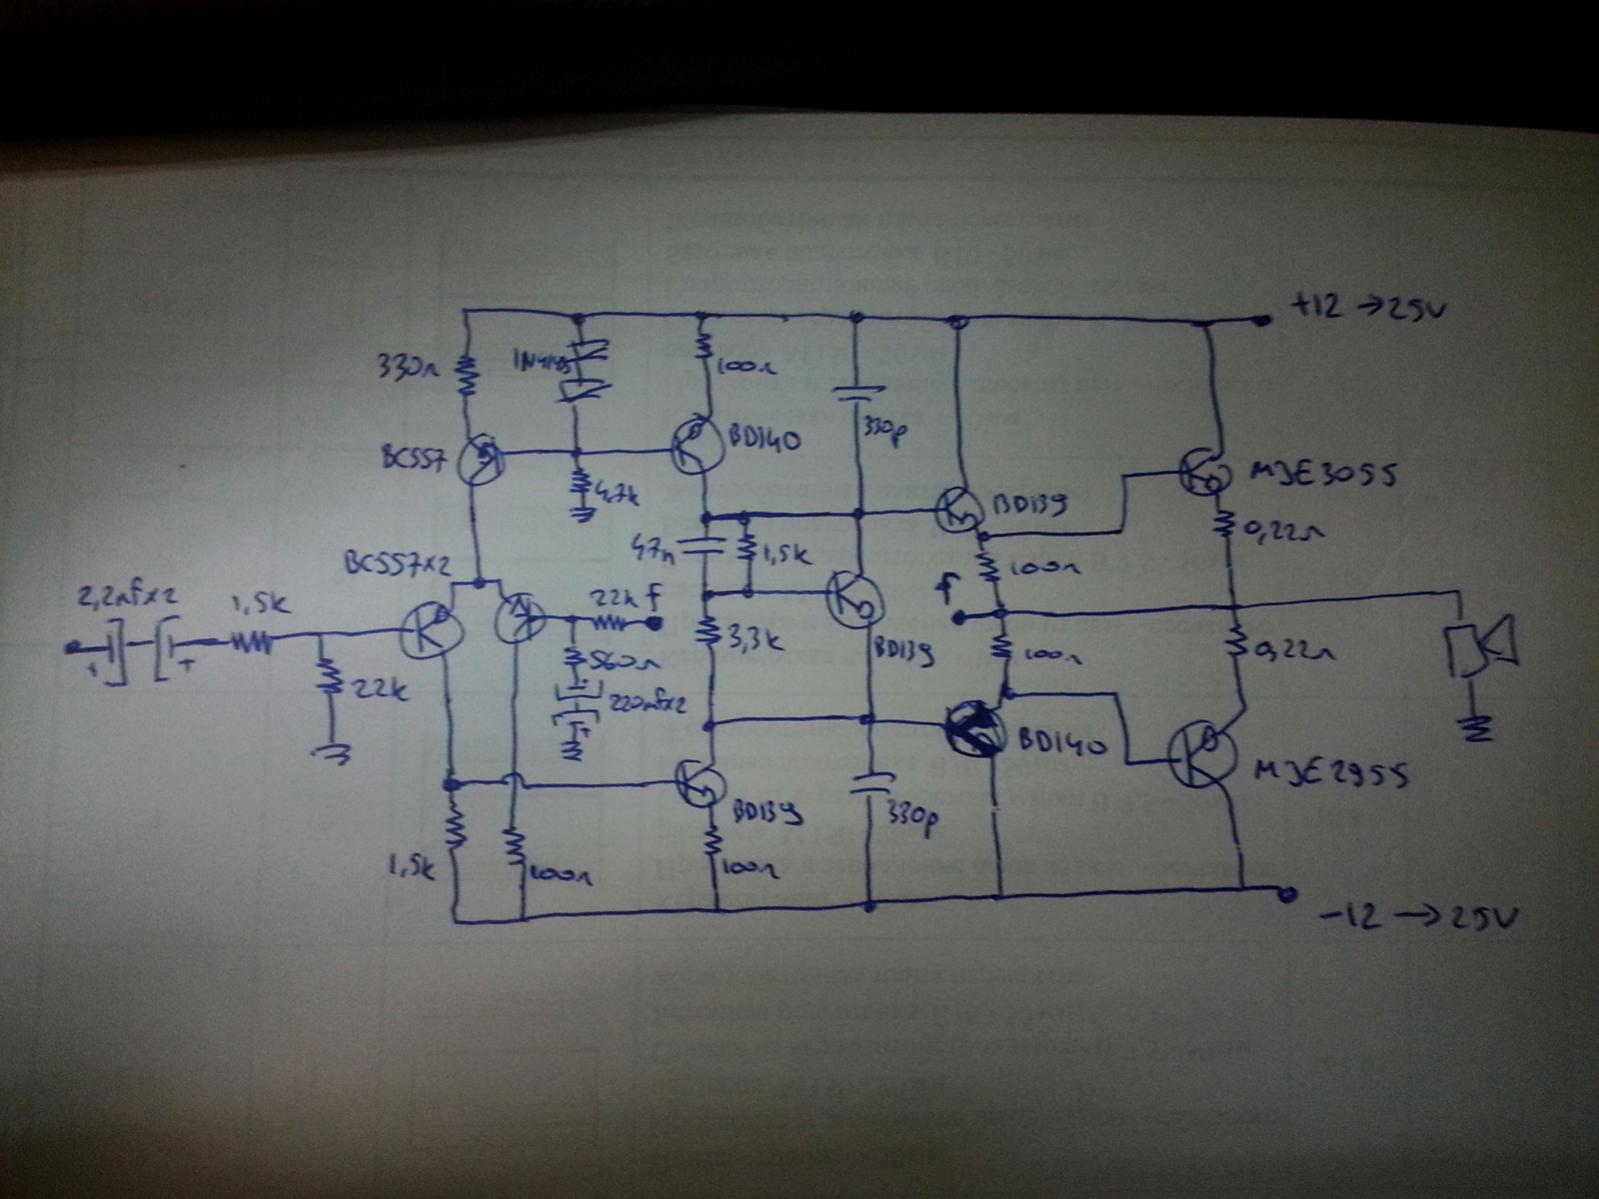 +12 → 25V
330Ω
1N4148
100Ω
330p
BC557
BD140
4,7k
MJE3055
BD139
0,22Ω
47n
1,5k
100Ω
BC557x2
2,2µfx2
1,5k
22k f
f
3,3k
560Ω
22k
BD139
100Ω
0,22Ω
220µfx2
BD140
MJE2955
BD139
330p
1,5k
100Ω
100Ω
-12 → 25V